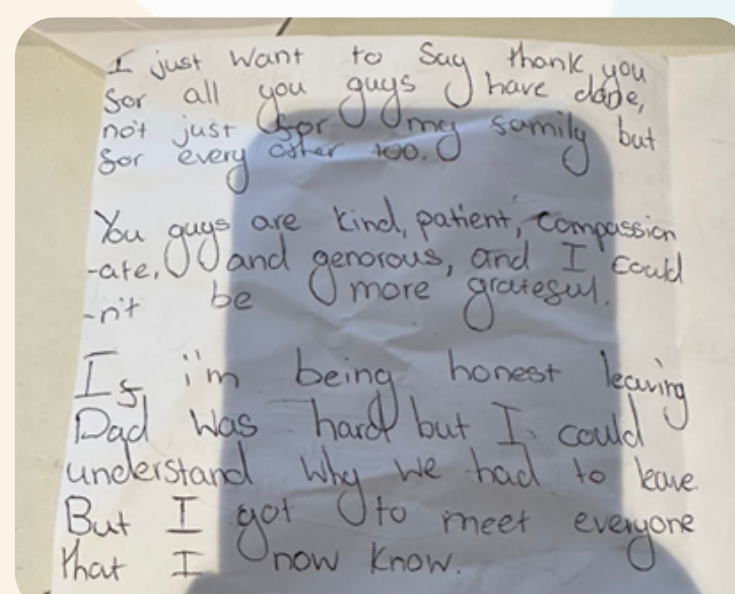 I just want to say thank you
for all you guys have done,
not just for my family but
for every other too.
You guys are kind, patient, compassion
-ate, and genorous, and I could
-n't be more grateful.
If i'm being honest leaving
Dad was hard but I could
understand why we had to leave.
But I got to meet everyone
that I now know.